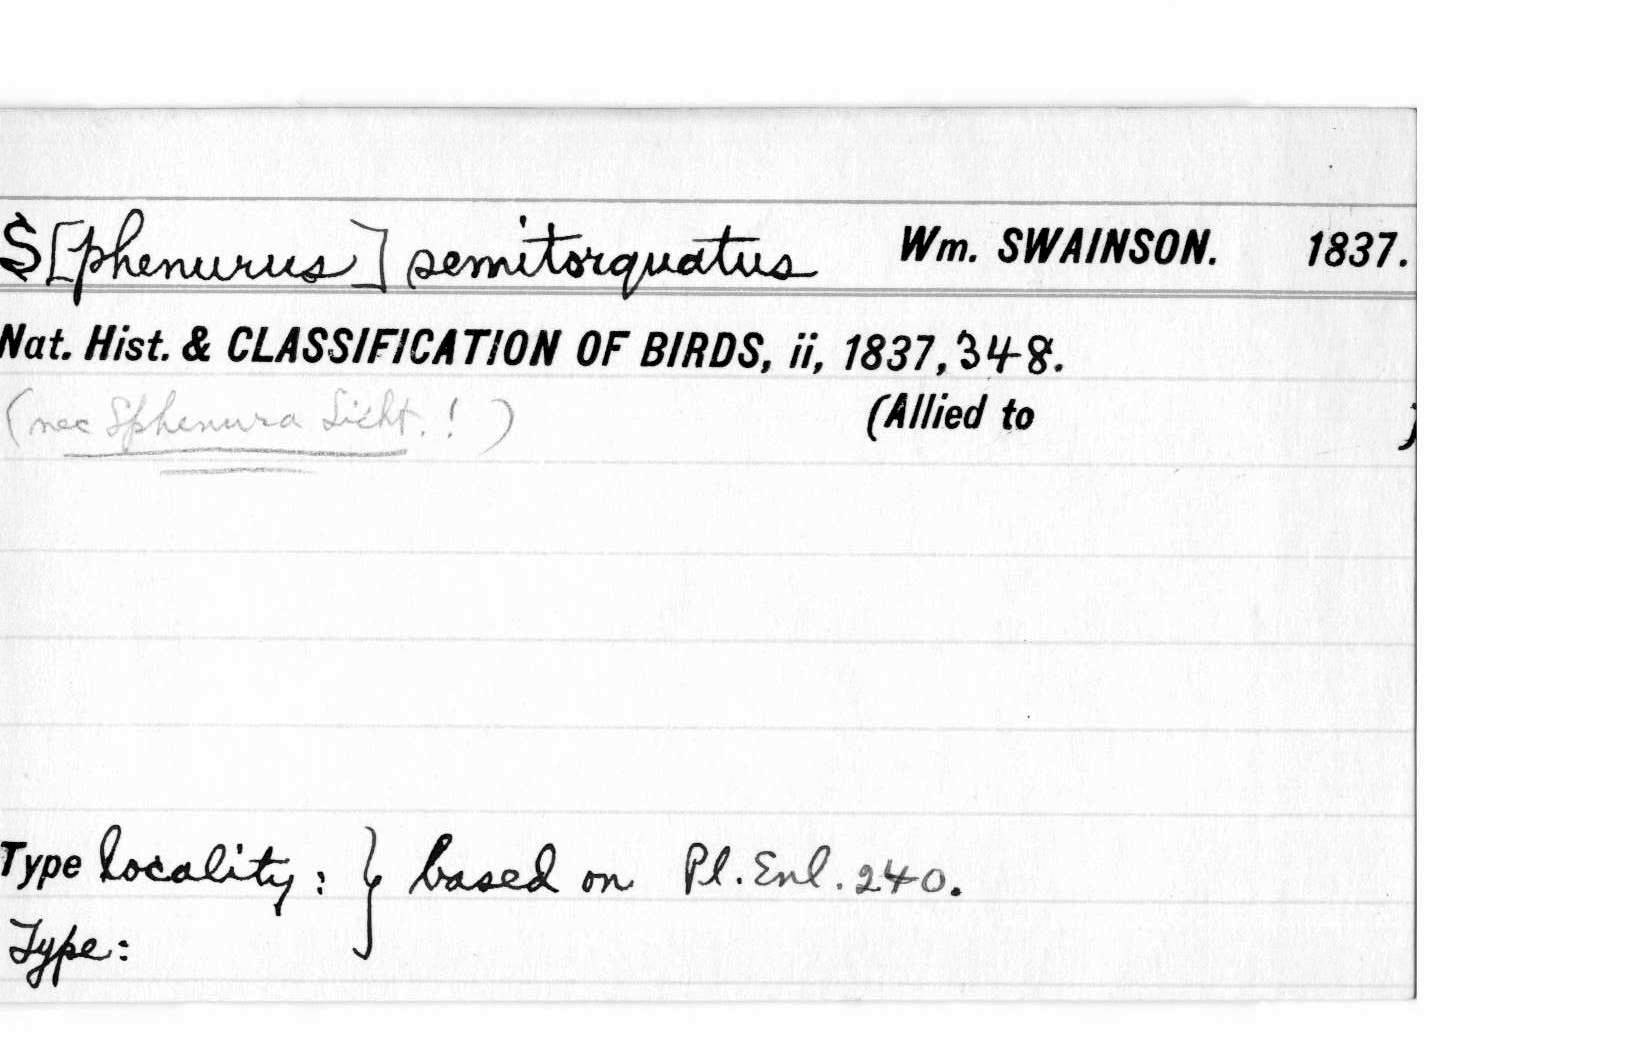 S[phenurus] semitorquatus Wm. SWAINSON. 1837.
Nat. Hist. & CLASSIFICATION OF BIRDS, ii, 1837, 348.
(nec Sphenura Licht.!) (Allied to )
Type locality: } based on Pl. Enl. 240.
Type: